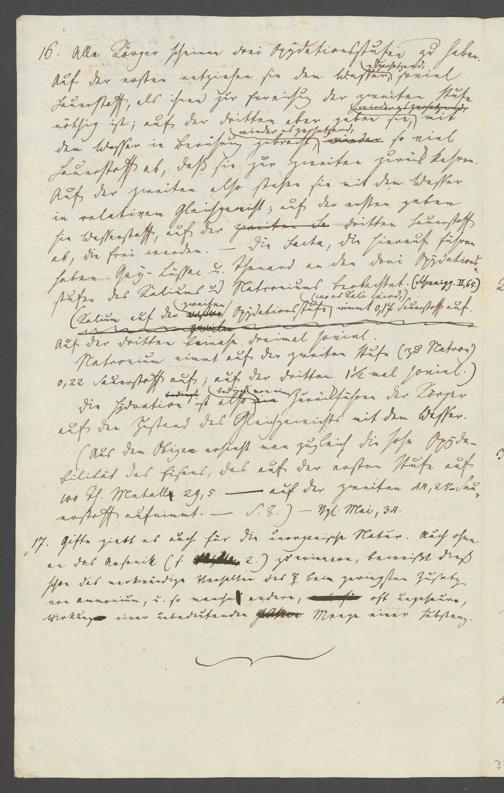 16. Alle Körper scheinen drei Oxydationsstufen zu haben.
Auf der ersten entziehen sie dem Wasser, zersetzend, soviel
Sauerstoff, als ihnen zur Erreichung der zweiten Stufe
nöthig ist; auf der dritten aber geben sie, mit
dem Wasser in Berührung gebracht, so viel
Sauerstoff ab, daß sie zur zweiten zurück kehren.
Auf der zweiten also stehen sie mit dem Wasser
in relativem Gleichgewicht; auf der ersten geben
sie Wasserstoff, auf der dritten Sauerstoff
ab, die frei werden. — Die Facta, die hierauf führen
haben Gay-Lussac u. Thenard an den drei Oxydations-
stufen des Kaliums u. Natroniums beobachtet. (Schweigg. II, 65)
(Kalium auf der zweiten Oxydationsstufe nimmt 0,17 Sauerstoff auf.
Auf der dritten beinahe dreimal soviel.
Natronium nimmt auf der zweiten Stufe (zu Natron)
0,22 Sauerstoff auf; auf der dritten 1½ mal soviel.)
Die Hydration ist also Zurückführen der Körper
auf den Zustand des Gleichgewichts mit dem Wasser.
(Aus dem Obigen ersieht man zugleich die hohe Oxyda-
bilität des Eisens, das auf der ersten Stufe auf
100 Th. Metall 29,5 — auf der zweiten 44,25 Sau-
erstoff aufnimmt. —) — Vgl. Mai, 34.
17. Gifte giebt es auch für die unorganische Natur. Auch ohne
an das Arsenik 2.) zu erinnern, beweist dieß
schon das merkwürdige Verhalten des ☿ beim geringsten Zusatz
von Ammonium, u. so manche andere, oft ungeheure,
Wirkung einer unbedeutenden Menge einer Substanz.